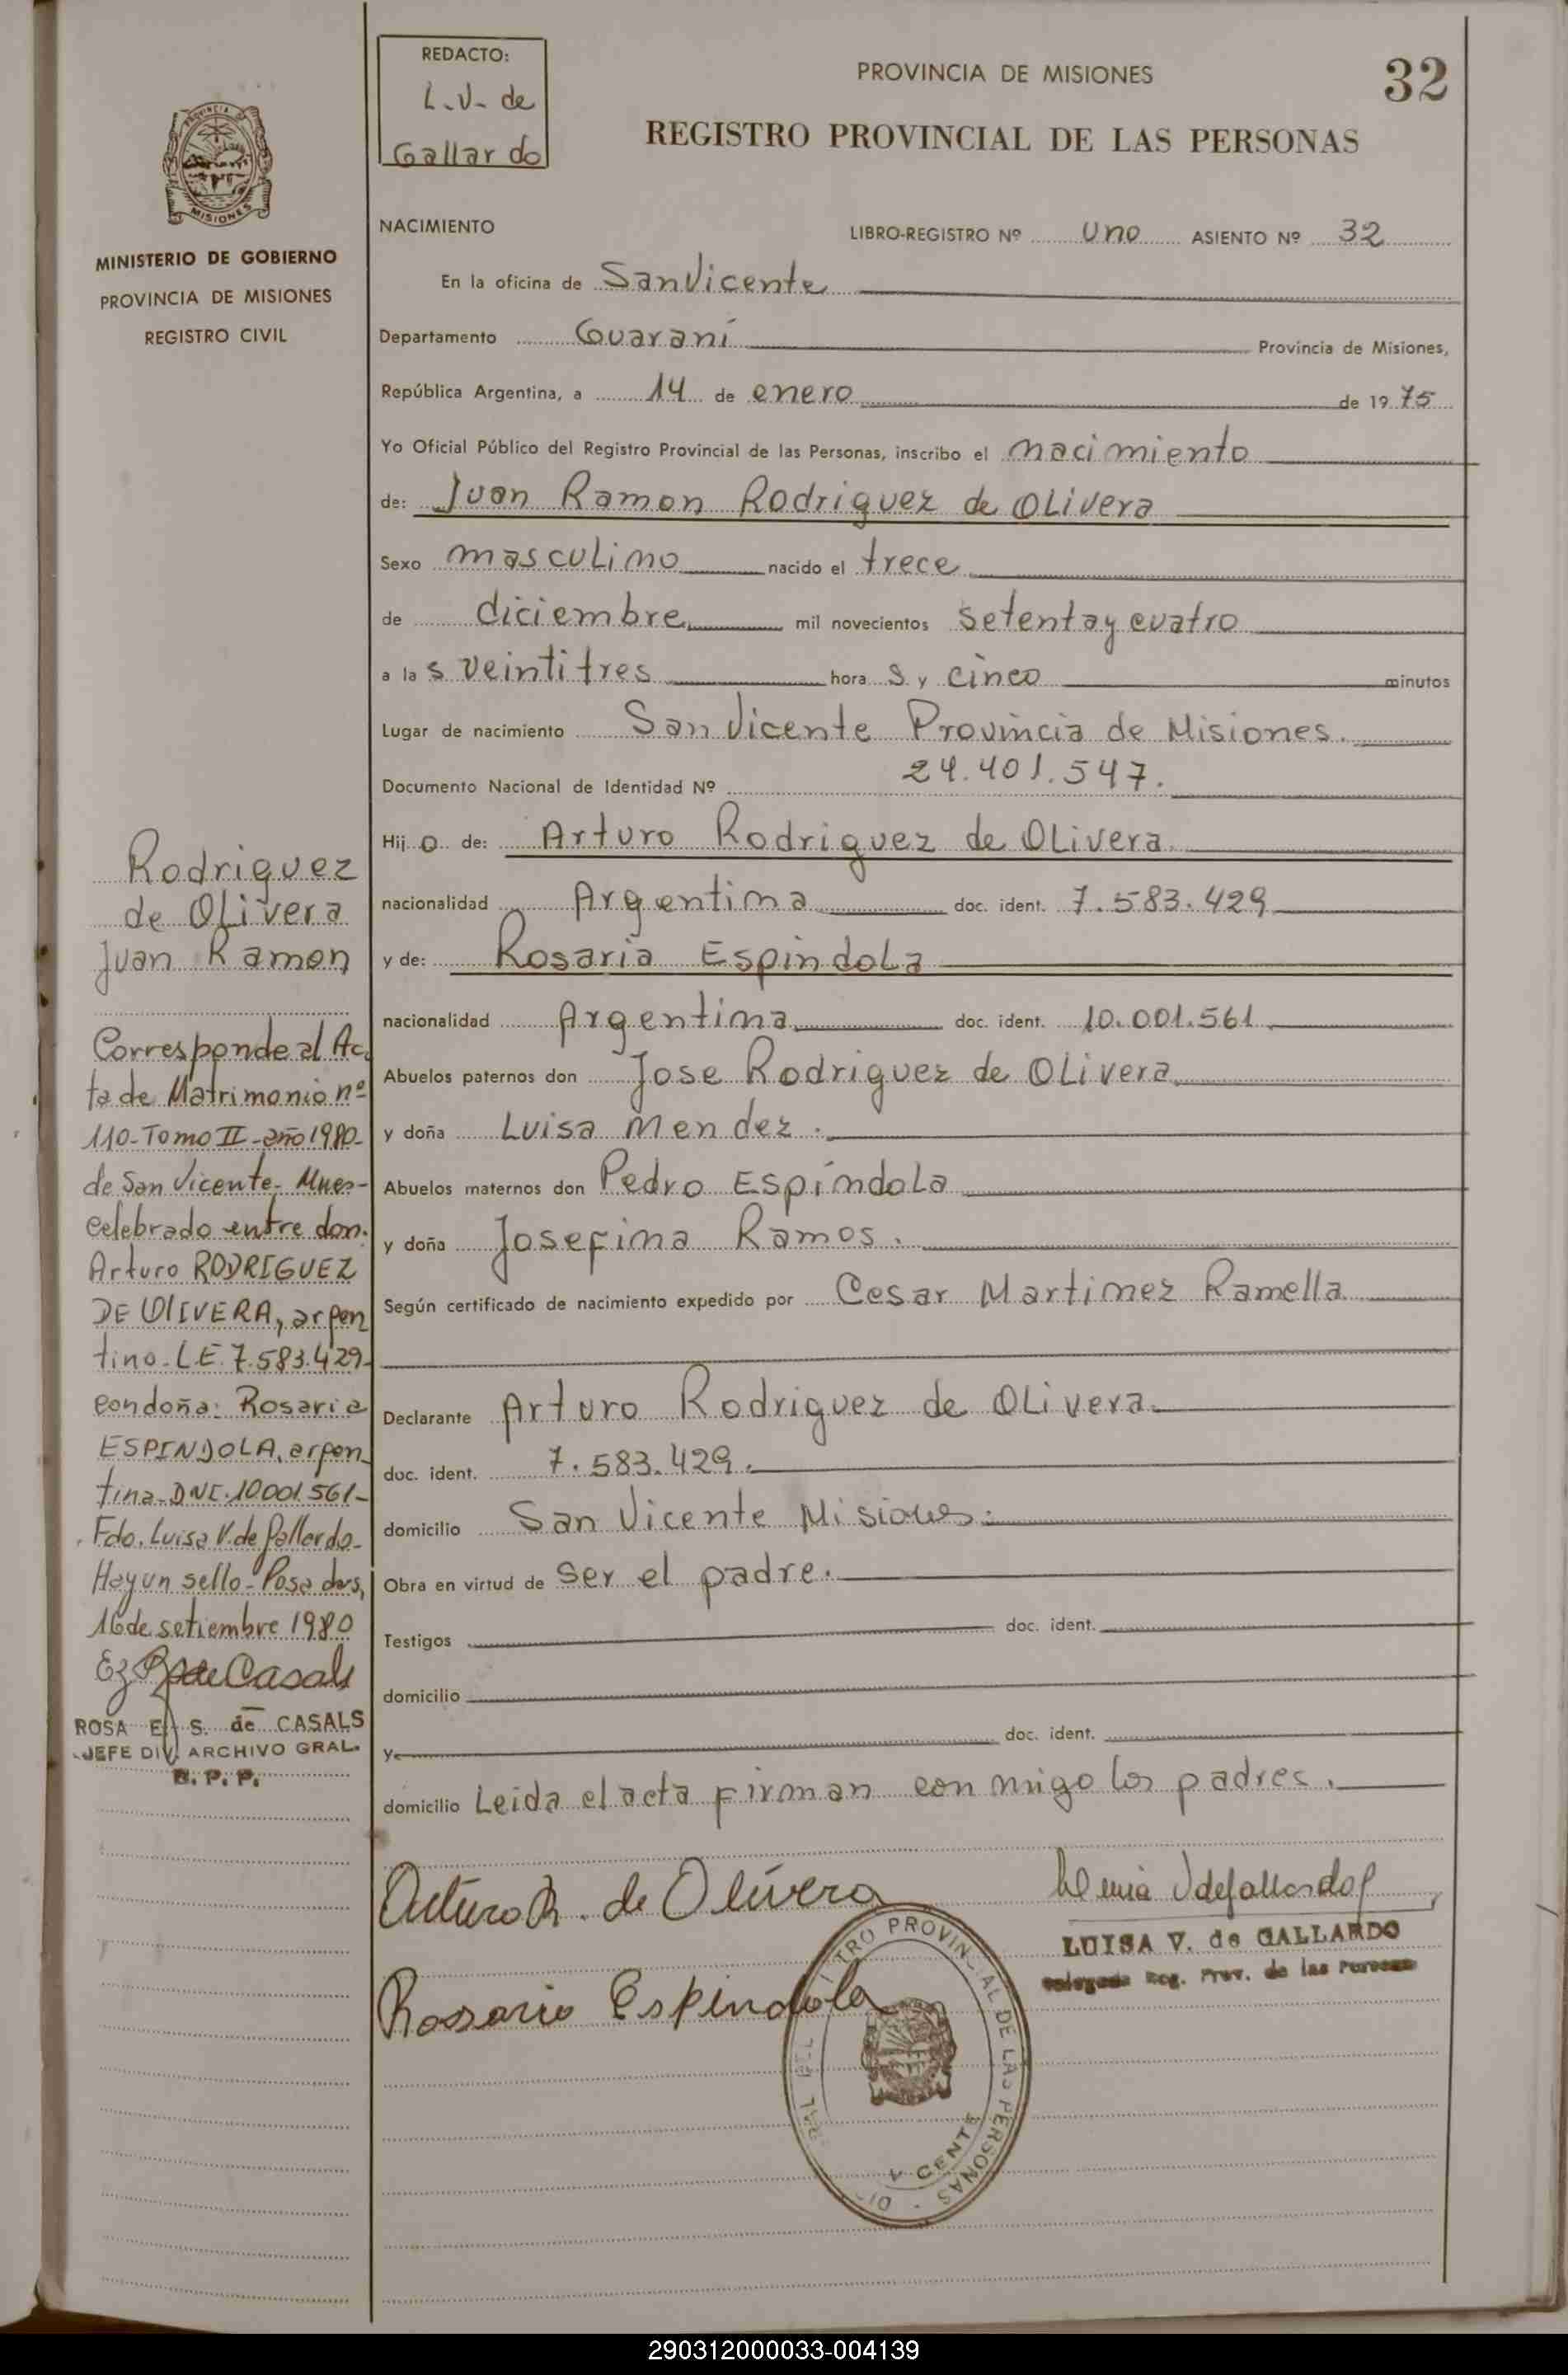 REDACTO:
L.V. de
Gallardo
PROVINCIA DE MISIONES
32
REGISTRO PROVINCIAL DE LAS PERSONAS
MISIONES
MINISTERIO DE GOBIERNO
PROVINCIA DE MISIONES
REGISTRO CIVIL
NACIMIENTO
LIBRO-REGISTRO Nº uno ASIENTO Nº 32
En la oficina de San Vicente
Departamento Guaraní Provincia de Misiones,
República Argentina, a 14 de enero de 19 75
Yo Oficial Público del Registro Provincial de las Personas, inscribo el nacimiento
de: Juan Ramon Rodriguez de Olivera
Sexo masculino nacido el trece
de diciembre mil novecientos setenta y cuatro
a la s veintitres hora s y cinco minutos
Lugar de nacimiento San Vicente Provincia de Misiones.
Documento Nacional de Identidad Nº 24.401.547.
Hij o de: Arturo Rodriguez de Olivera
nacionalidad Argentina doc. ident. 7.583.429
y de: Rosaria Espindola
nacionalidad Argentina doc. ident. 10.001.561
Abuelos paternos don Jose Rodriguez de Olivera
y doña Luisa Mendez.
Abuelos maternos don Pedro Espíndola
y doña Josefina Ramos.
Según certificado de nacimiento expedido por Cesar Martinez Ramella
Declarante Arturo Rodriguez de Olivera
doc. ident. 7.583.429.
domicilio San Vicente Misiones.
Obra en virtud de ser el padre.
Testigos doc. ident.
domicilio
y doc. ident.
domicilio Leida el acta firman conmigo los padres.
Arturo R. de Olivera
Rosario Espindola
LUISA V. de GALLARDO
Reg. Prov. de las Personas
PROVINCIAL DE LAS PERSONAS
Rodriguez
de Olivera
Juan Ramon
Corresponde al Ac
ta de Matrimonio nº
110-Tomo II-año 1980-
de San Vicente- Mnes-
celebrado entre don.
Arturo RODRIGUEZ
DE OLIVERA, argen
tino-L.E. 7.583.429-
con doña: Rosaria
ESPINDOLA, argen
tina-DNI.10001.561-
Fdo. Luisa V. de Gallardo-
Hay un sello- Posadas,
16 de setiembre 1980
de Casals
ROSA E. S. de CASALS
JEFE DIV. ARCHIVO GRAL.
R. P. P.
290312000033-004139